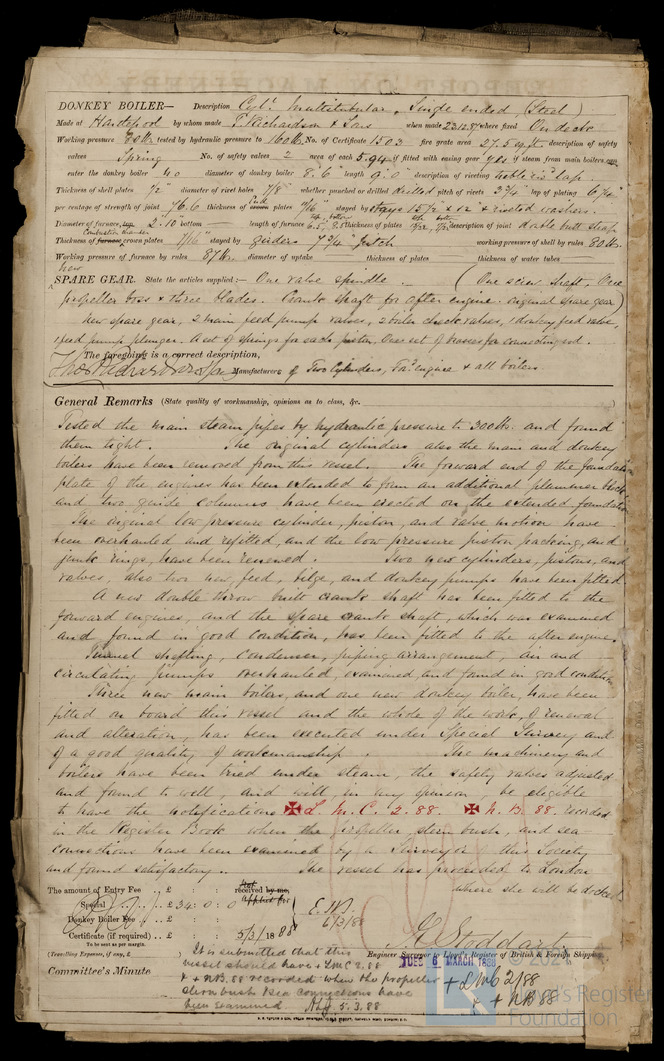 DONKEY BOILER— Description Cyl! Multitubular, Single ended, (Steel)
Made at Hartlepool by whom made T. Richardson & Sons when made 23.12.87 where fixed On deck
Working pressure 80 lb. tested by hydraulic pressure to 160 lb. No. of Certificate 1503 fire grate area 27.5 sq ft. description of safety
valves Spring No. of safety valves 2 area of each 5.94 if fitted with easing gear yes if steam from main boilers can
enter the donkey boiler no diameter of donkey boiler 8'.6" length 9'.0" description of riveting treble riv. lap.
Thickness of shell plates 1/2" diameter of rivet holes 7/8" whether punched or drilled drilled pitch of rivets 3 3/4" lap of plating 6 1/4"
per centage of strength of joint 76.6 thickness of end crown plates 11/16" stayed by stays 15 1/2" × 12" & riveted washers.
Diameter of furnace, top 2'.10" bottom — length of furnace top 6.5, bottom 8.5 thickness of plates description of joint double butt straps
Thickness of furnace combustion chamber crown plates 7/16" stayed by girders 7 3/4" pitch working pressure of shell by rules 80 lb.
Working pressure of furnace by rules 87 lb. diameter of uptake thickness of plates thickness of water tubes
new
SPARE GEAR. State the articles supplied:— One valve spindle. — (One screw shaft, One
propeller boss & three blades. Crank shaft for after engine. original spare gear)
New spare gear, 2 main feed pump valves, 2 boiler check valves, 1 donkey feed valve,
1 feed pump plunger. A set of springs for each piston. One set of brasses for connecting rod.
The foregoing is a correct description,
Thos Richardson & Sons Manufacturers of Two Cylinders, For? engine & all boilers.
General Remarks (State quality of workmanship, opinions as to class, &c.
Tested the main steam pipes by hydraulic pressure to 300 lb. and found
them tight. The original cylinders also the main and donkey
boilers have been removed from this vessel. The forward end of the foundation
plate of the engines has been extended to form an additional plummer block
and two guide columns have been erected on the extended foundation
The original low pressure cylinder, piston, and valve motion have
been overhauled and refitted, and the low pressure piston, packing, and
junk rings, have been renewed. Two new cylinders, pistons, and
valves, also two new, feed, bilge, and donkey pumps have been fitted
A new double throw built crank shaft has been fitted to the
forward engines, and the spare crank shaft, which was examined
and found in good condition, has been fitted to the after engine.
Tunnel shafting, condenser, piping arrangement, air and
circulating pumps overhauled, examined and found in good condition
Three new main boilers, and one new donkey boiler, have been
fitted on board this vessel and the whole of the work, of renewal
and alteration, has been executed under Special Survey and
of a good quality of workmanship. The machinery and
boilers have been tried under steam, the safety valves adjusted
and found to well, and will, in my opinion, be eligible
to have the notifications ✠ L. M. C. 2. 88. ✠ N. B. 88. recorded
in the Register Book when the propeller, stern bush, and sea-
connections have been examined by a Surveyor this Society
and found satisfactory. The vessel has proceeded to London
where she will be docked
The amount of Entry Fee .. £ : : received by me,
Special .. .. £ 34 : 0 : 0 applied for
Donkey Boiler Fee .. £ : :
Certificate (if required) .. £ : : 5/3/1888
6/3/88
To be sent as per margin.
(Travelling Expenses, if any, £ )
Engineer Surveyor to Lloyd's Register of British & Foreign Shipping
Committee's Minute
TUES 6 MARCH 1888
+ LMC 2/88
+ NB 88
It is submitted that this
vessel should have + LMC 2.88
& + NB.88 recorded when the propeller
stern bush & sea connections have
been examined 5.3.88
© 2021
Lloyd's Register
Foundation